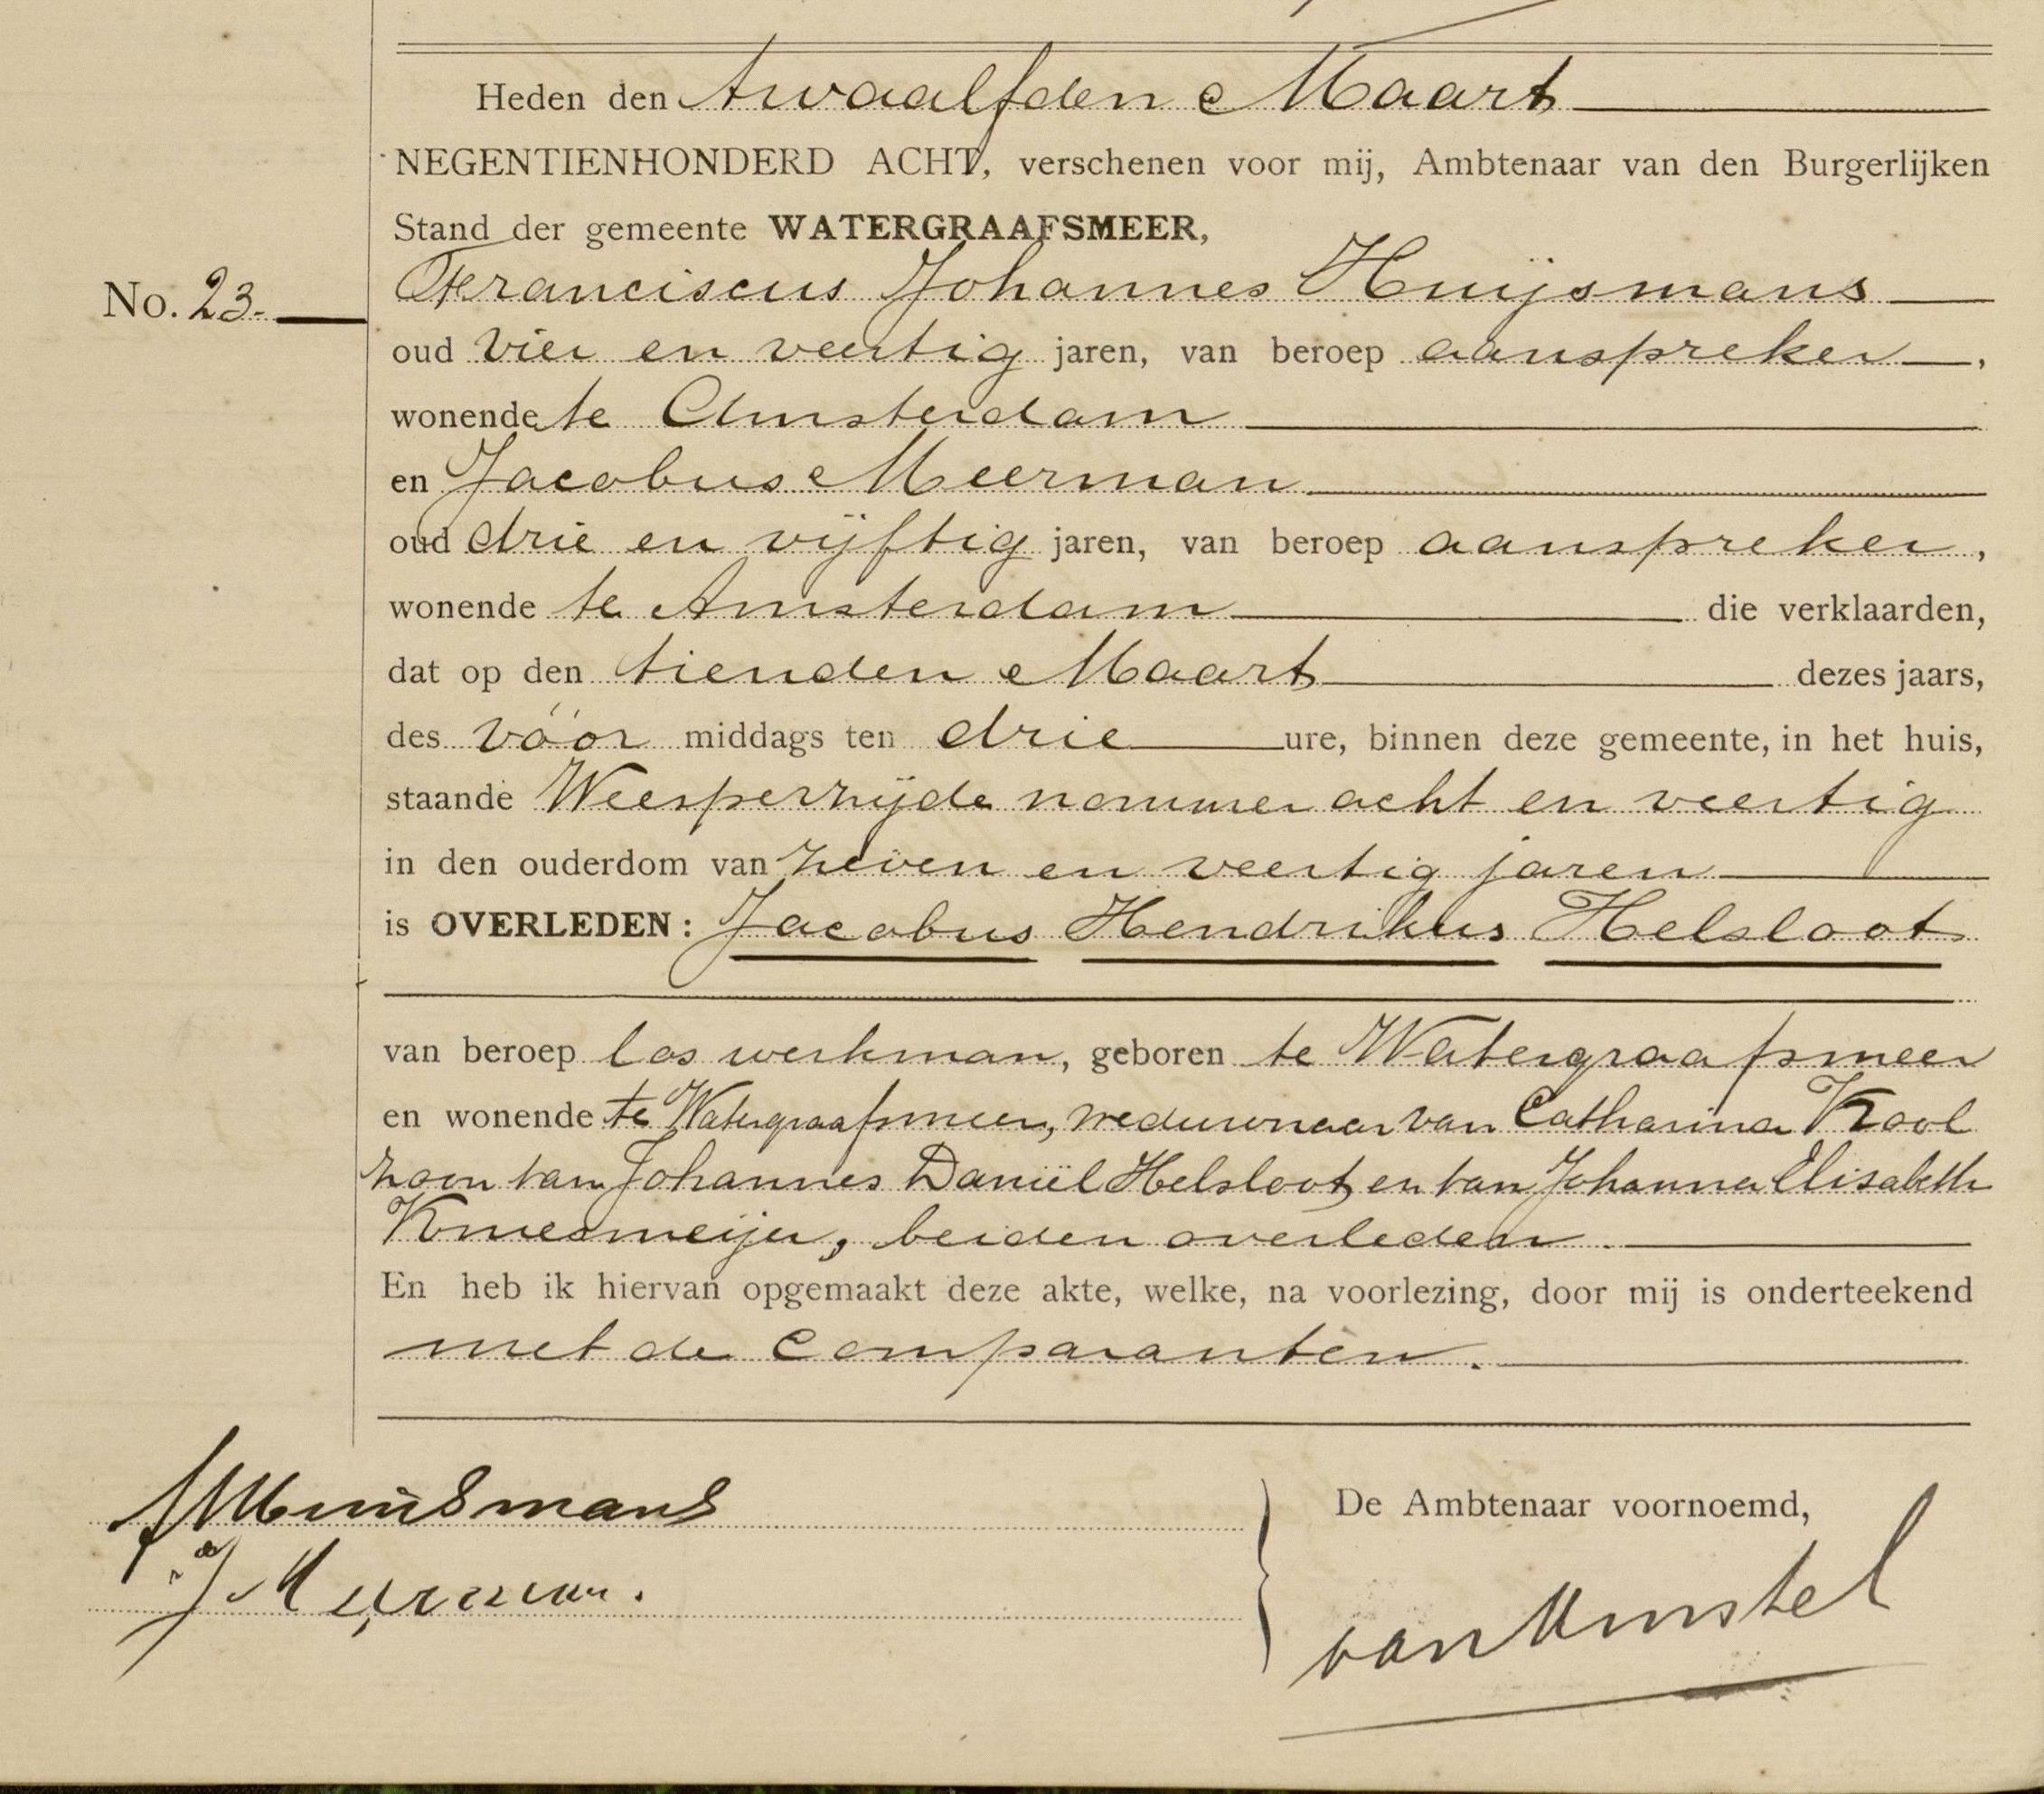 Heden den twaalfden Maart
NEGENTIENHONDERD ACHT, verschenen voor mij, Ambtenaar van den Burgerlijken
Stand der gemeente WATERGRAAFSMEER,
No. 23. Franciscus Johannes Huijsmans
oud vier en veertig jaren, van beroep aanspreker,
wonende te Amsterdam
en Jacobus Meerman
oud drie en vijftig jaren, van beroep aanspreker,
wonende te Amsterdam die verklaarden,
dat op den tienden Maart dezes jaars,
des vóór middags ten drie ure, binnen deze gemeente, in het huis,
staande Weesperzijde nommer acht en veertig
in den ouderdom van zeven en veertig jaren
is OVERLEDEN: Jacobus Hendrikus Helsloot
van beroep los werkman, geboren te Watergraafsmeer
en wonende te Watergraafsmeer, weduwnaar van Catharina Kool
zoon van Johannes Daniël Helsloot en van Johanna Elisabeth
Kmesmeijer, beiden overleden.
En heb ik hiervan opgemaakt deze akte, welke, na voorlezing, door mij is onderteekend
met de comparanten.
Huijsmans
De Ambtenaar voornoemd,
J Meerman.
van Amstel